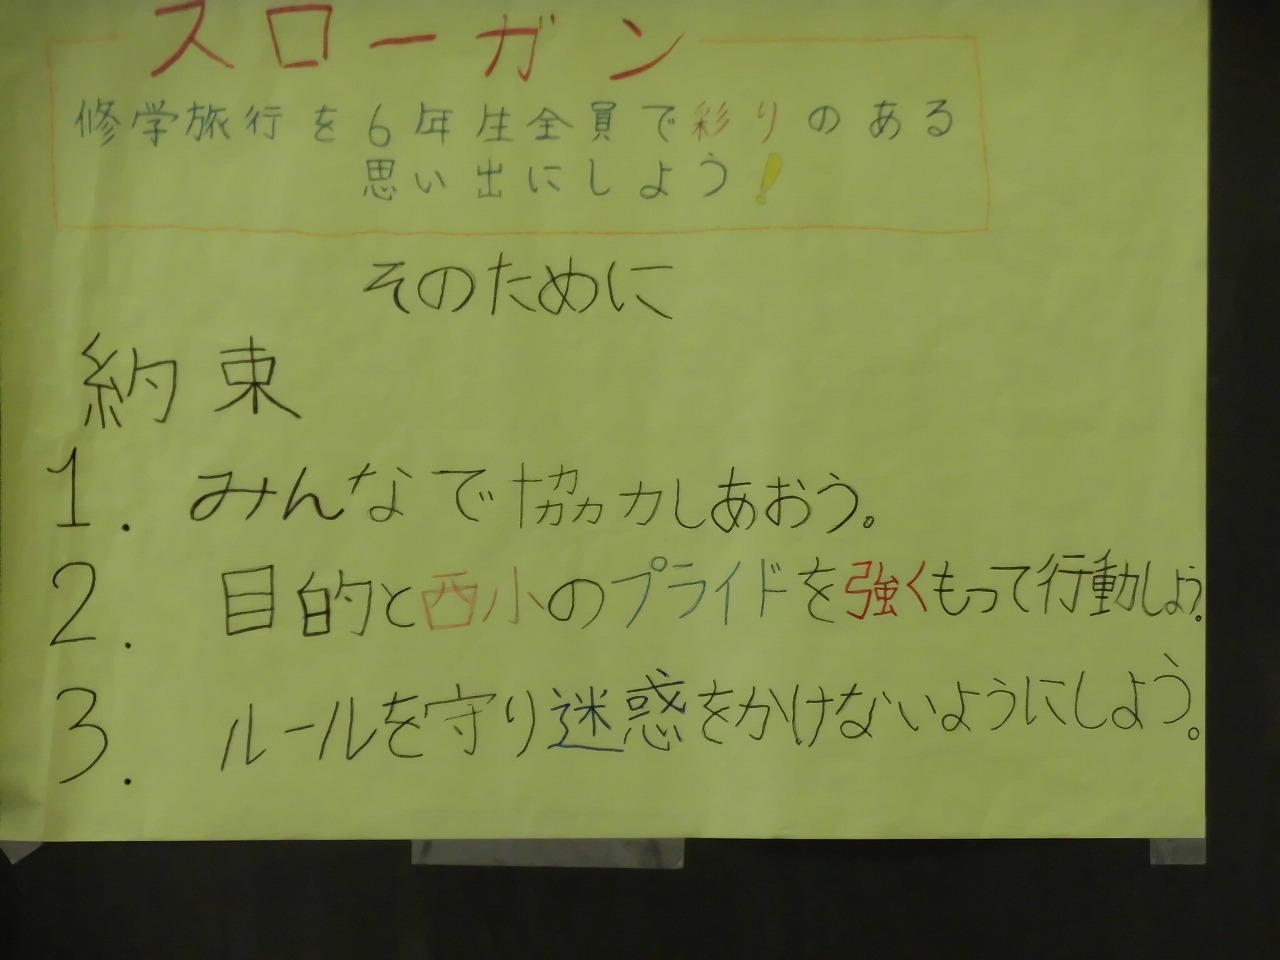 スローガン
修学旅行を6年生全員で彩りのある
思い出にしよう!
そのために
約束
1. みんなで協力しあおう。
2. 目的と西小のプライドを強くもって行動しよう。
3. ルールを守り迷惑をかけないようにしよう。